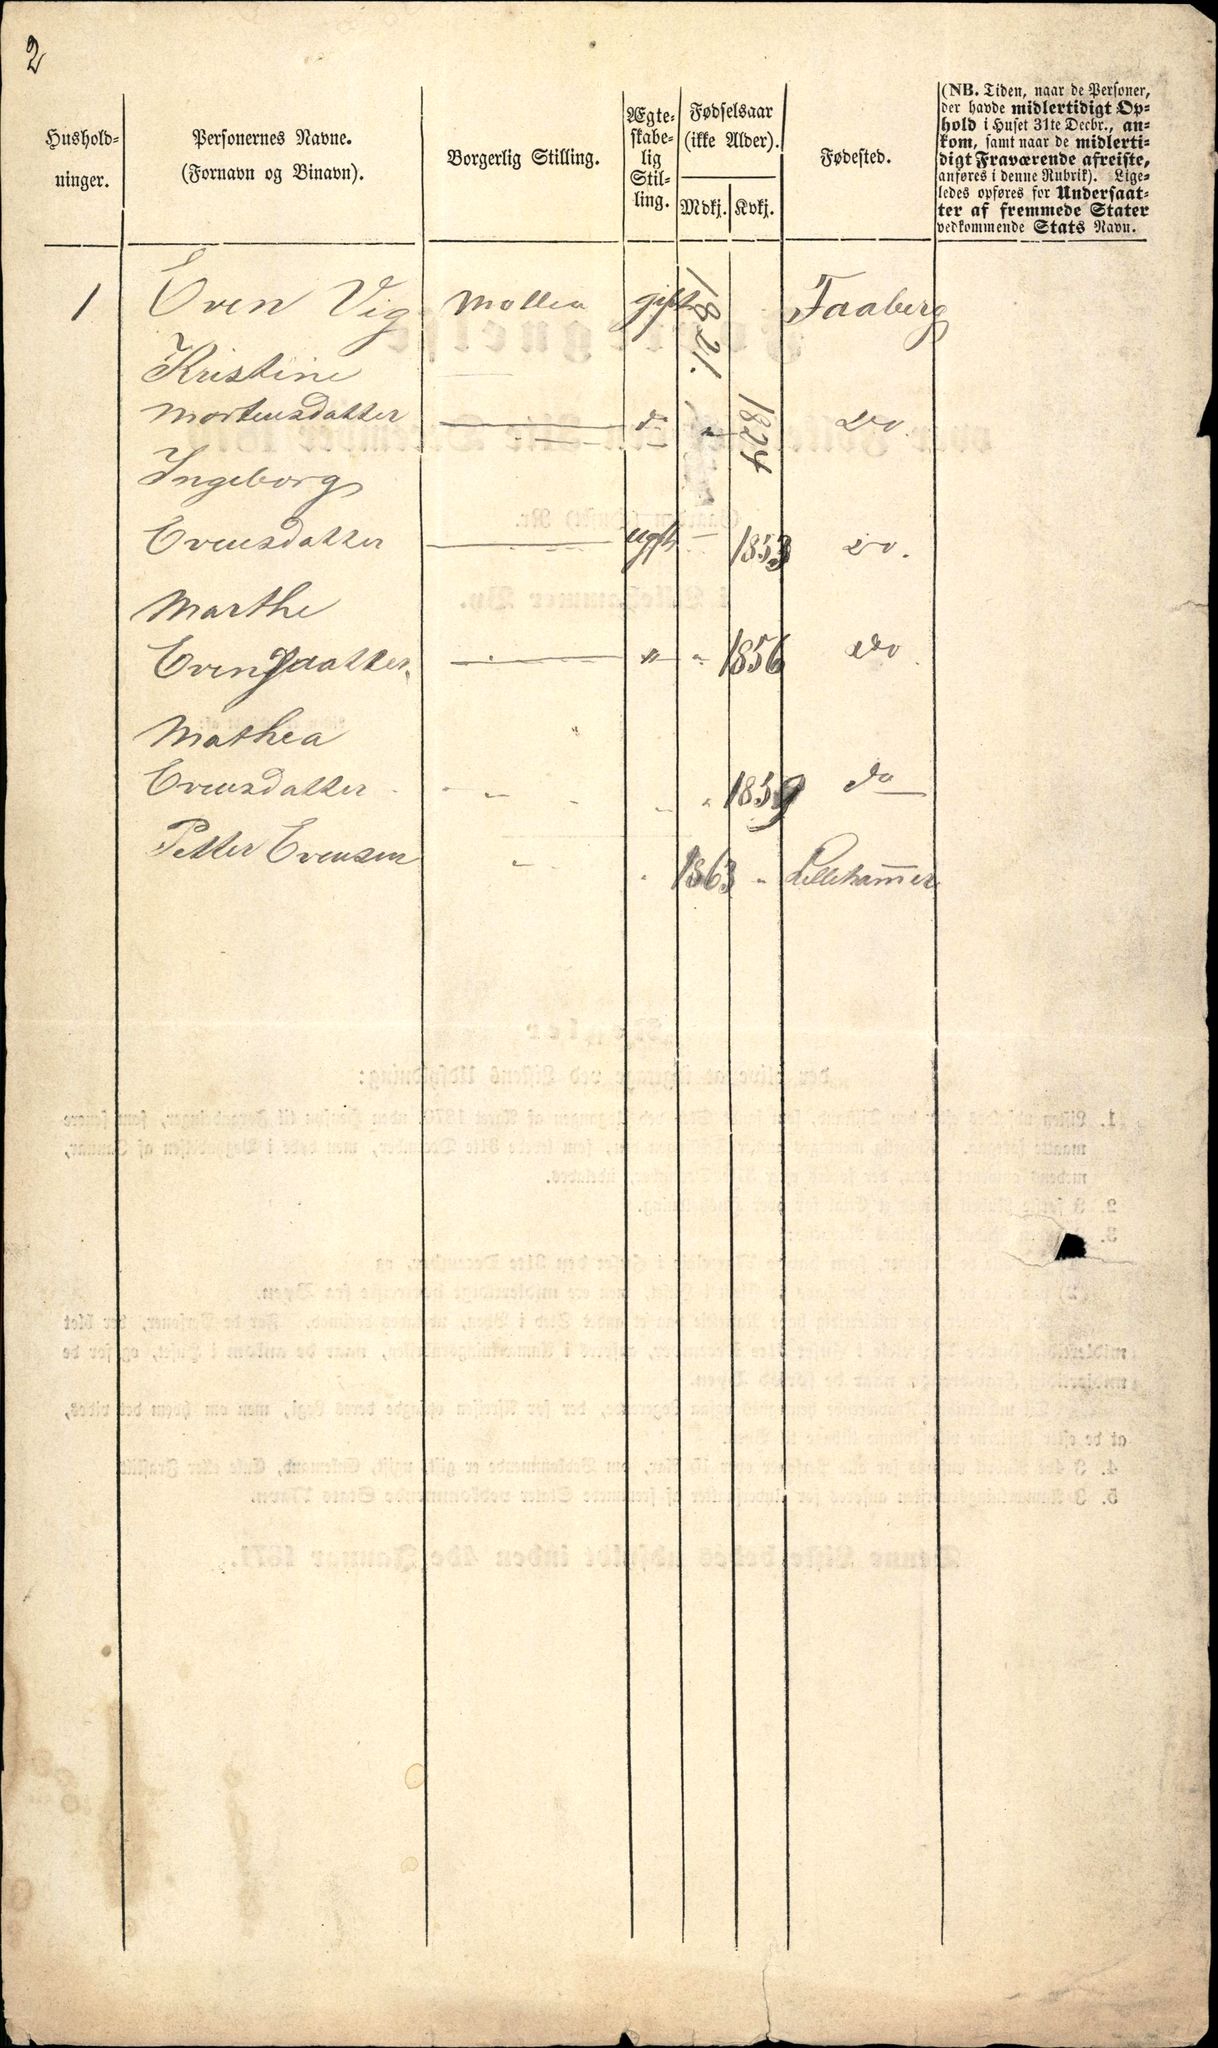 2
Hushold-
ninger.
Personernes Navne.
(Fornavn og Binavn).
Borgerlig Stilling.
Ægte-
skabe-
lig
Stil-
ling.
Fødselsaar
(ikke Alder).
Mdkj. Kvkj.
Fødested.
(NB. Tiden, naar de Personer,
der havde midlertidigt Op-
hold i Huset 31te Decbr., an-
kom, samt naar de midlerti-
digt Fraværende afreiste,
anføres i denne Rubrik). Lige-
ledes opføres for Undersaat-
ter af fremmede Stater
vedkommende Stats Navn.
1 Even Vig Møller gift 1821. Faaberg
Kristine
Mortensdatter — d " 1824 Do.
Ingeborg
Evensdatter — ugft — 1853 Do.
Marthe
Evensdatter — " " 1856 Do
Mathea
Evensdatter " " 1859 do
Petter Evensen " 1863 " Lillehammer